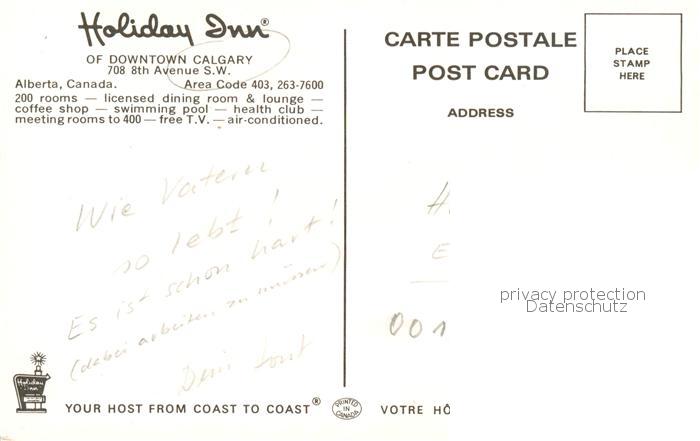 Holiday Inn®
OF DOWNTOWN CALGARY
708 8th Avenue S.W.
Alberta, Canada. Area Code 403, 263-7600
200 rooms — licensed dining room & lounge —
coffee shop — swimming pool — health club —
meeting rooms to 400 — free T.V. — air-conditioned.
Wie Vatern
so lebt!
Es ist schon hart!
(dabei arbeiten zu müssen)
Holiday Inn
YOUR HOST FROM COAST TO COAST®
PRINTED IN CANADA
CARTE POSTALE
POST CARD
PLACE
STAMP
HERE
ADDRESS
H
E
001
privacy protection
Datenschutz
VOTRE HÔ